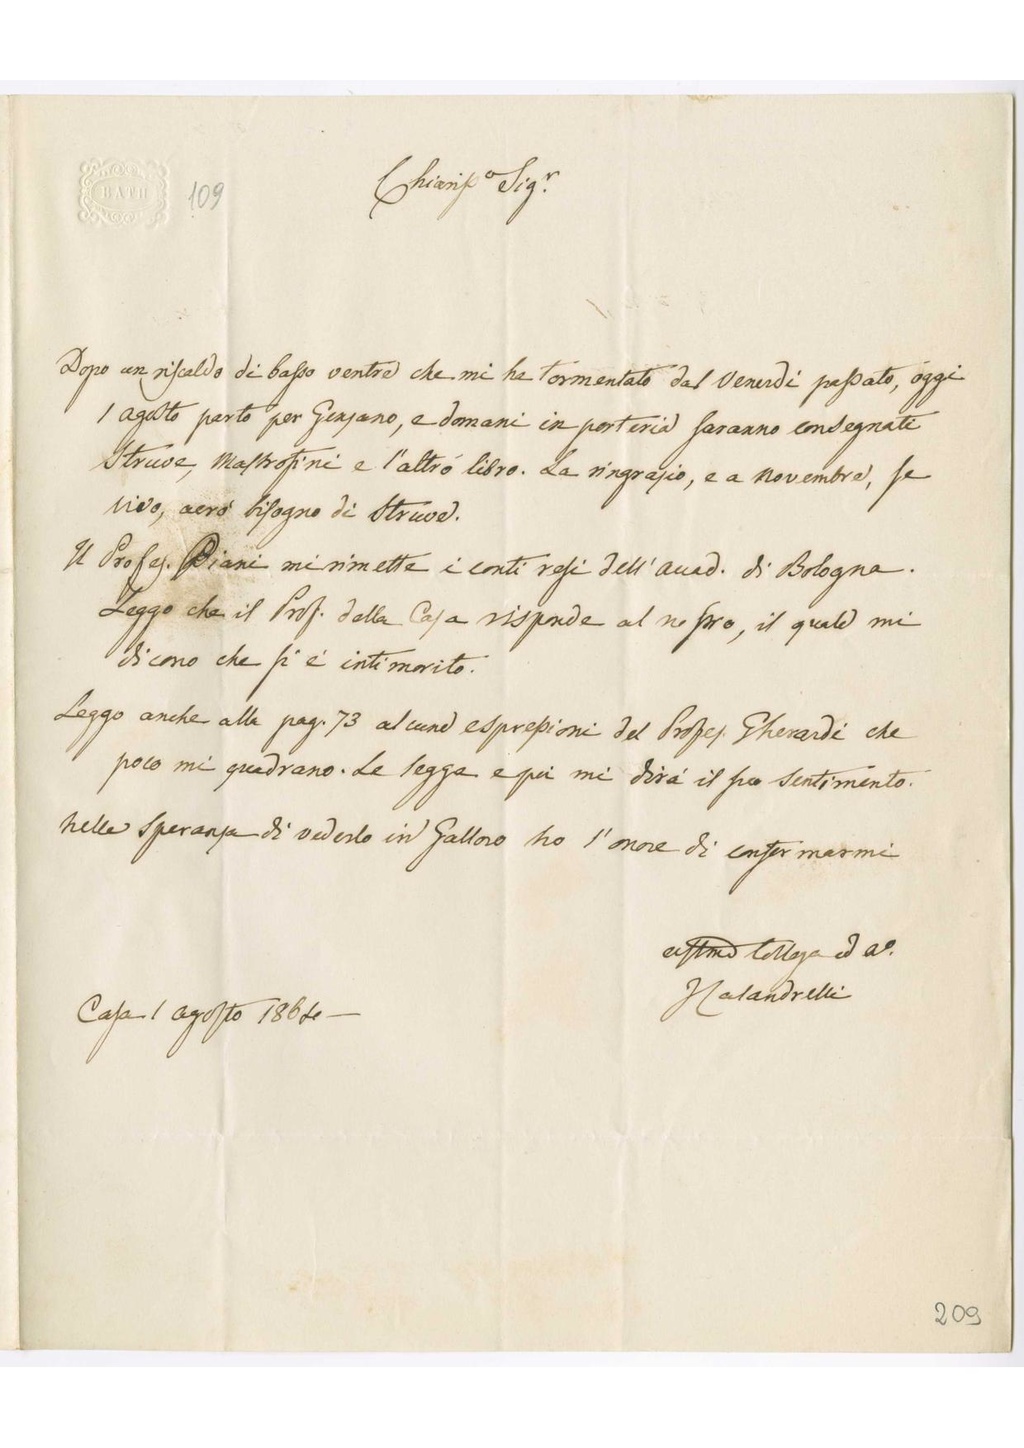 BATH
109
Chiaris.o Sig.r
Dopo un riscaldo di basso ventre che mi ha tormentato dal Venerdi passato, oggi
1 agosto parto per Genzano, e domani in porteria saranno consegnati
Struve, Mastrofini e l'altro libro. La ringrazio, e a Novembre, se
vivo, avrò bisogno di Struve.
Il Profes. Piani mi rimette i conti resi dell'Accad. di Bologna.
Leggo che il Prof. della Casa risponde al nostro, il quale mi
dicono che si è intimorito.
Leggo anche alla pag. 73 alcune espressioni del Profes. Gherardi che
poco mi quadrano. Le legga e poi mi dirà il suo sentimento.
Nella speranza di vederlo in Galloro ho l'onore di confermarmi
Collega ed a.o
Calandrelli
Casa 1 agosto 186
209